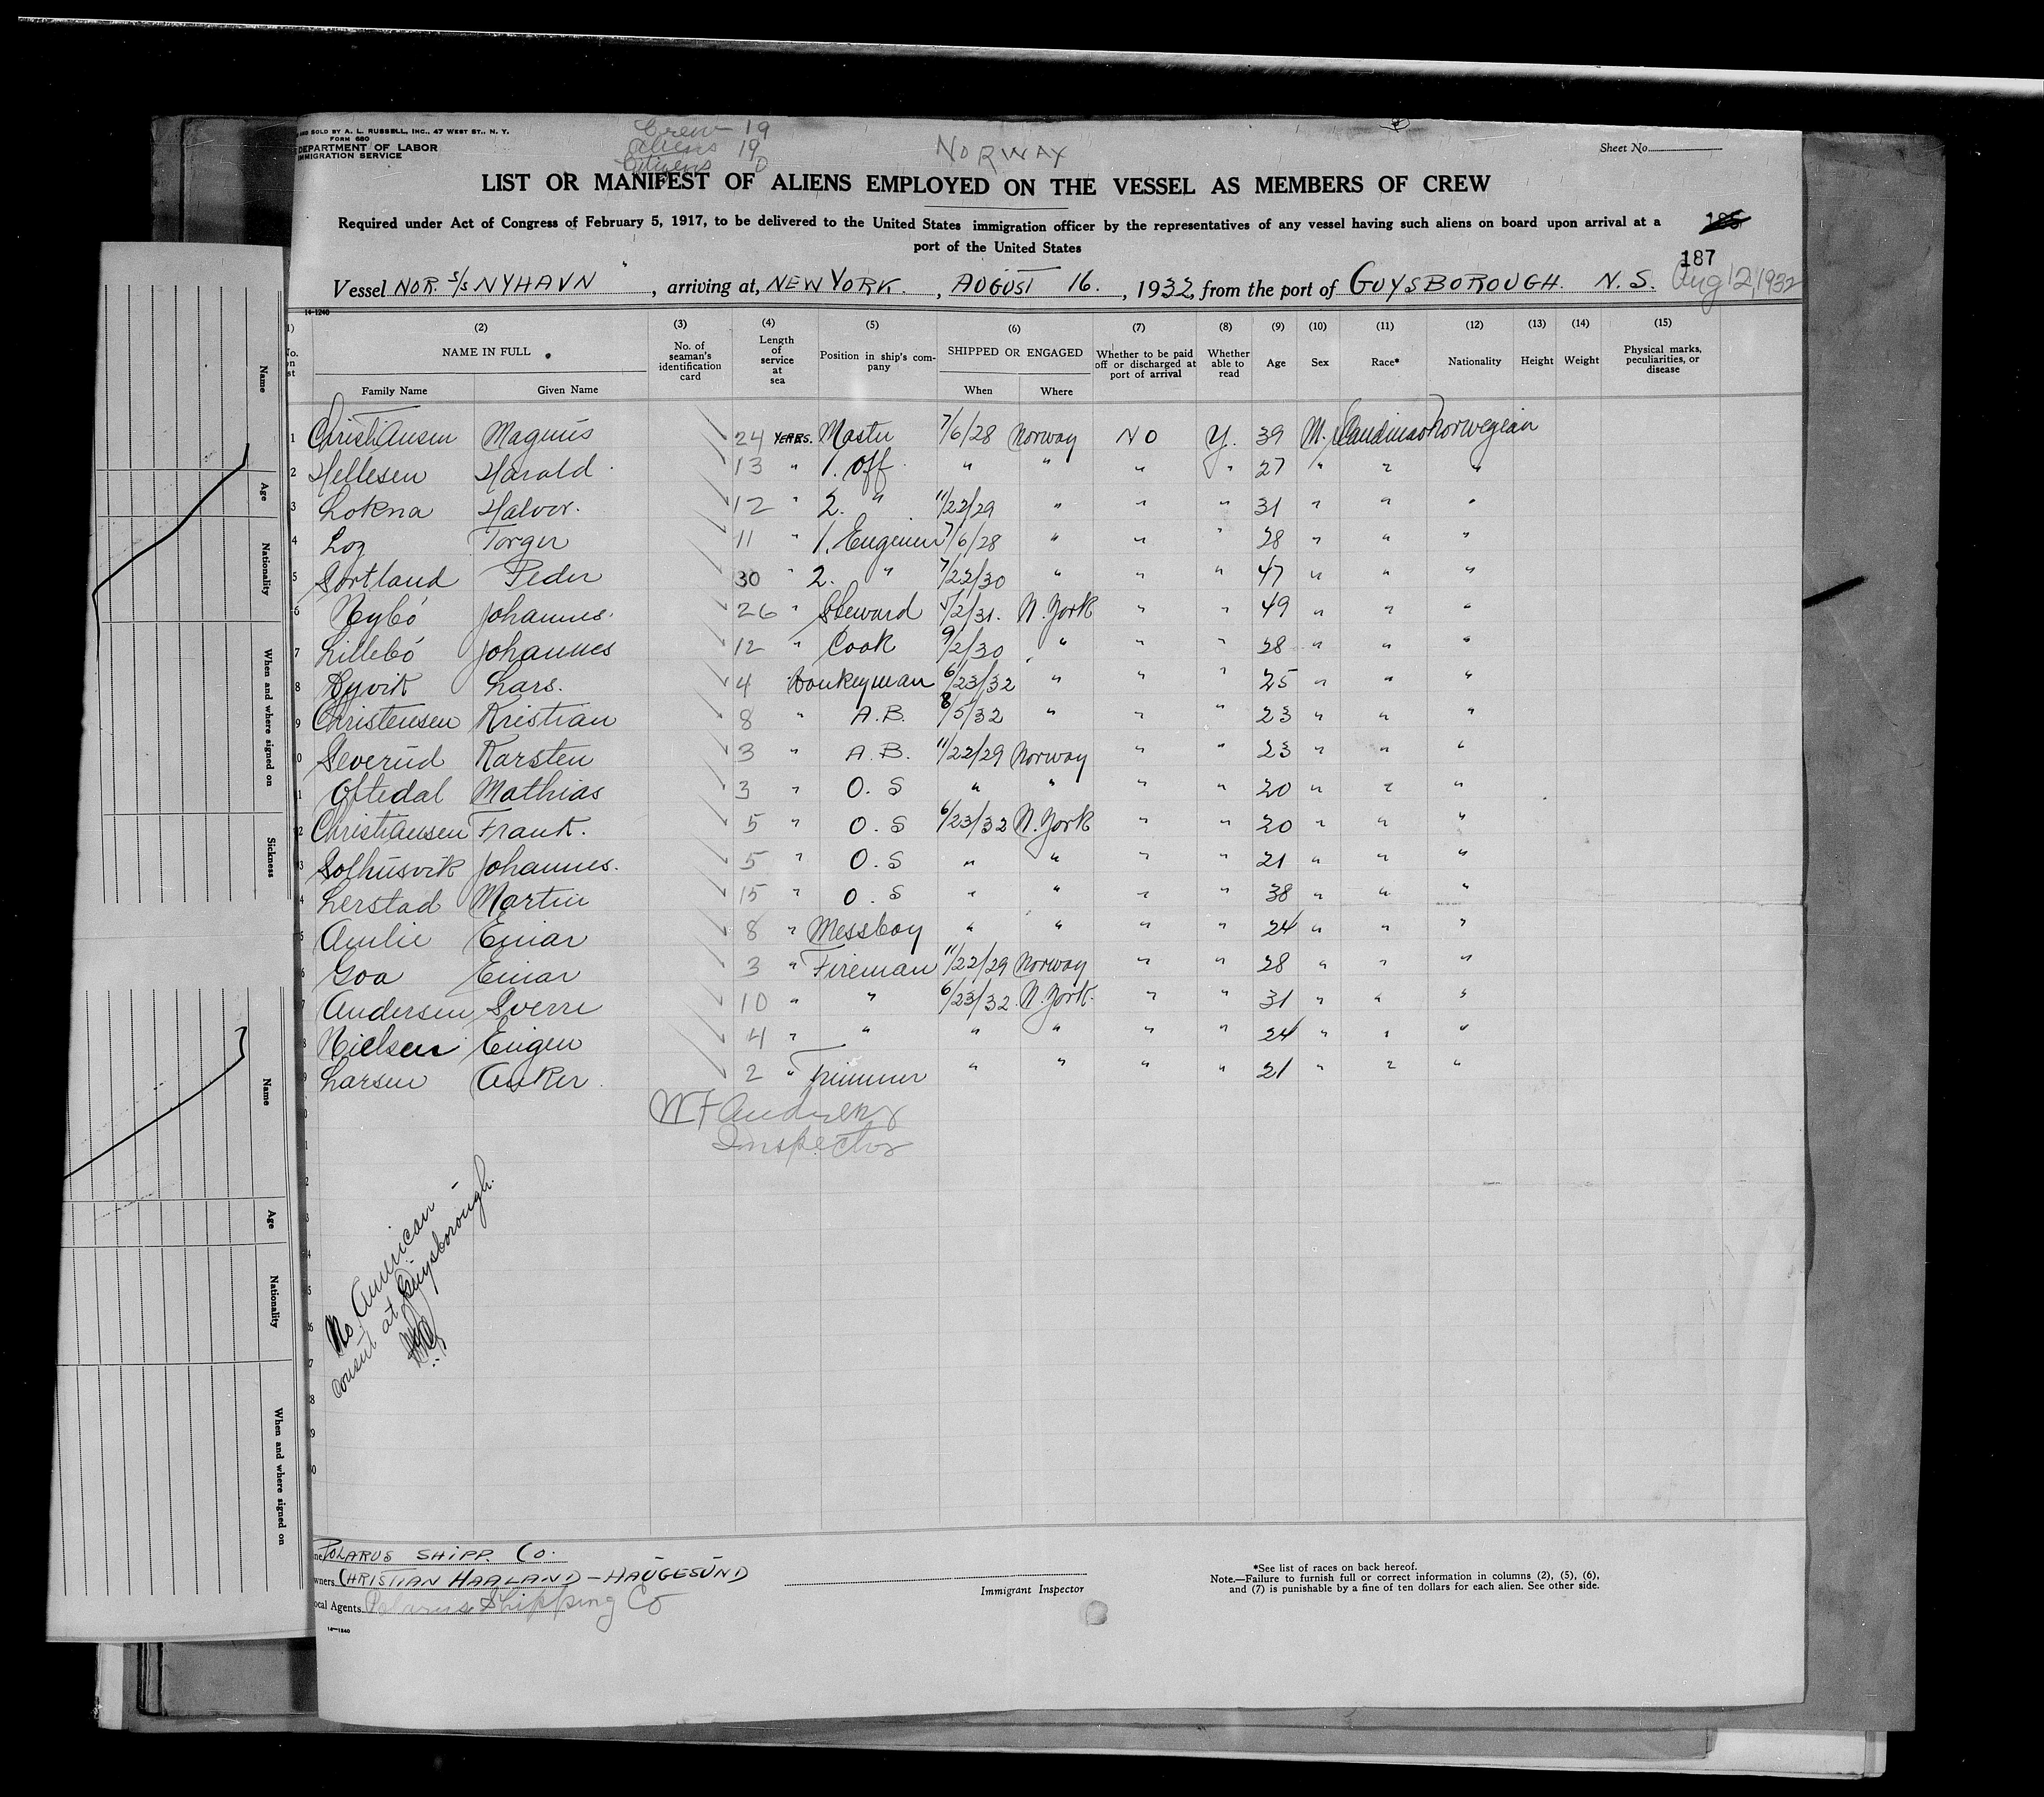 AND SOLD BY A. L. RUSSELL, INC., 47 WEST ST., N. Y.
FORM 680
DEPARTMENT OF LABOR
IMMIGRATION SERVICE
Crew 19
Aliens 19
Citizens 0
NORWAY
Sheet No.
LIST OR MANIFEST OF ALIENS EMPLOYED ON THE VESSEL AS MEMBERS OF CREW
Required under Act of Congress of February 5, 1917, to be delivered to the United States immigration officer by the representatives of any vessel having such aliens on board upon arrival at a
port of the United States
185
187
Vessel NOR. S/S NYHAVN, arriving at, NEW YORK., AUGUST 16., 1932, from the port of GUYSBOROUGH. N.S. Aug 12, 1932
14-1240
(1) (2) (3) (4) (5) (6) (7) (8) (9) (10) (11) (12) (13) (14) (15)
No. on list NAME IN FULL No. of seaman's identification card Length of service at sea Position in ship's company SHIPPED OR ENGAGED Whether to be paid off or discharged at port of arrival Whether able to read Age Sex Race* Nationality Height Weight Physical marks, peculiarities, or disease
Family Name Given Name When Where
1 Christiansen Magnus 24 YEARS. Master 7/6/28 Norway NO Y. 39 M. Scandinav Norwegian
2 Hellesen Harald 13 " 1. Off. " " " " 27 " " "
3 Lokna Halvor. 12 " 2. " 11/22/29 " " " 31 " " "
4 Log Torger 11 " 1. Engineer 7/6/28 " " " 28 " " "
5 Sortland Peder 30 " 2. " 7/22/30 " " " 47 " " "
6 Nybó Johannes. 26 " Steward 5/2/31. N. York " " 49 " " "
7 Lillebó Johannes 12 " Cook 9/2/30 " " " 28 " " "
8 Ryvik Lars. 4 " Donkeyman 6/23/32 " " " 25 " " "
9 Christensen Kristian 8 " A.B. 8/5/32 " " " 23 " " "
10 Severud Karsten 3 " A.B. 11/22/29 Norway " " 23 " " "
11 Oftedal Mathias 3 " O.S " " " " 20 " " "
12 Christiansen Frank. 5 " O.S 6/23/32 N. York " " 20 " " "
13 Solhusvik Johannes. 5 " O.S " " " " 21 " " "
14 Lerstad Martin 15 " O.S " " " " 38 " " "
15 Amlie Einar 8 " Messboy " " " " 24 " " "
16 Goa Einar 3 " Fireman 11/22/29 Norway " " 28 " " "
17 Andersen Sverre 10 " " 6/23/32. N. York. " " 31 " " "
18 Nielsen Eugen 4 " " " " " " 24 " " "
19 Larsen Anker. 2 " Trimmer " " " " 21 " " "
W F Andrews
Inspector
No American
consul at Guysborough.
POLARUS SHIPP. CO.
Owners CHRISTIAN HAALAND - HAUGESUND
Local Agents Polarus Shipping Co
14-1240
Immigrant Inspector
*See list of races on back hereof.
Note.—Failure to furnish full or correct information in columns (2), (5), (6),
and (7) is punishable by a fine of ten dollars for each alien. See other side.
Name
Age
Nationality
When and where signed on
Sickness
Name
Age
Nationality
When and where signed on